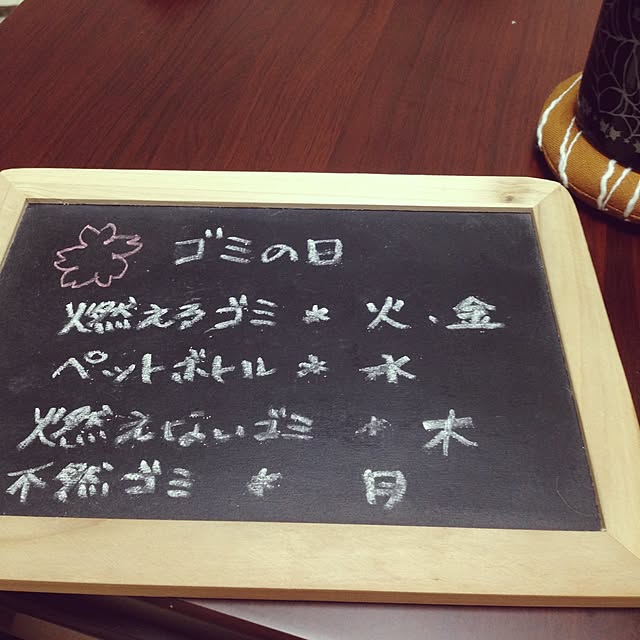 ゴミの日
燃えるゴミ * 火、金
ペットボトル * 水
燃えないゴミ * 木
不然ゴミ * 月